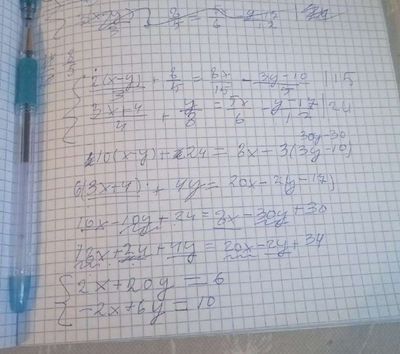 2(x-y)/3 + 8/5 = 8x/15 - 3y-10/5 |15
3x+4/4 + y/8 = 5x/6 - y-17/12 |24
30y-30
10(x-y)+24 = 8x-3(3y-10)
6(3x+4) + 4y = 20x-2(y-17)
10x-10y+24=8x-30y+30
18x+24+4y = 20x-2y+34
2x+20y=6
-2x+6y=10